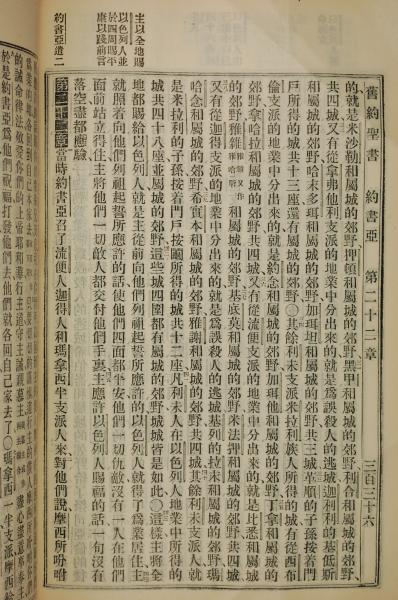 舊約聖書 約書亞 第二十二章 三百三十六
的就是米沙勒和屬城的郊野、押頓和屬城的郊野、黑甲和屬城的郊野、利合和屬城的郊野、
共四城又有從拿弗他利支派的地業中分出來的就是爲誤殺人的逃城迦利利的基低斯
和屬城的郊野哈末多珥和屬城的郊野加珥坦和屬城的郊野共三城革順的子孫按着門
戶所得的城共十三座還有屬城的郊野○其餘利未支派米拉利族人所得的城有從西布
倫支派的地業中分出來的就是約念和屬城的郊野加珥他和屬城的郊野丁拿和屬城的
郊野拿哈拉和屬城的郊野共四城又有從流便支派的地業中分出來的就是比悉和屬城
的郊野雅雜雅雜又作雅哈斯和屬城的郊野基底莫和屬城的郊野米法押和屬城的郊野共四城
又有從迦得支派的地業中分出來的就是爲誤殺人的逃城基列的拉末和屬城的郊野瑪
哈念和屬城的郊野希實本和屬城的郊野雅謝和屬城的郊野共四城其餘利未支派人就
是米拉利的子孫按着門戶按鬮所得的城共十二座凡利未人在以色列人地業中所得的
城共四十八座並屬城的郊野這些城四圍都有屬城的郊野城城皆是如此○這樣主將全
地都賜給以色列人就是主從前向他們列祖起誓所應許的以色列人就得了爲業居住主
就照着向他們列祖起誓所應許的話使他們四面都平安他們一切仇敵沒有一人在他們
面前站立得住主將他們一切敵人都交付他們手裏主應許以色列人賜福的話一句沒有
落空盡都應驗
第二十二章當時約書亞召了流便人迦得人和瑪拿西半支派人來對他們說摩西所吩咐
主以全地賜
以色列人並
於四周賜平
康以踐前言
約書亞遣二
的誡命律法效愛你們的上帝耶和華行主道守主誡親慕主
盡心盡意
於是約書亞爲他們祝福打發他們去他們就各回自己家去了○瑪拿西一半支派摩西